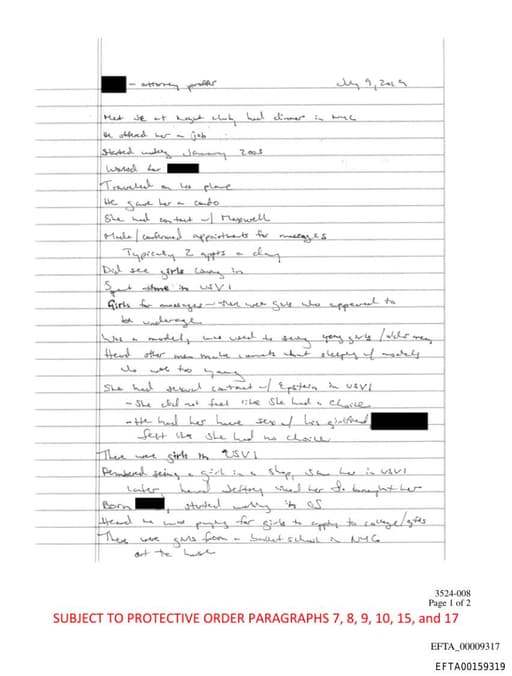 - attorney proffer July 9, 2019
Met JE at night club, had dinner in NYC
He offered her a job
Started working January 2005
Worked for
Traveled on his plane
He gave her a condo
She had contact w/ Maxwell
Made/confirmed appointments for massages
Typically 2 appts a day
Did see girls coming in
Spent time in USVI
Girls for massages - there were girls who appeared to
be underage
Was a model, was used to seeing young girls / older men
Heard other men make comments about sleeping w/ models
who were too young
She had sexual contact w/ Epstein in USVI
- She did not feel like she had a choice
- He had her have sex w/ his girlfriend
felt like she had no choice
There were girls in USVI
Remembered seeing a girl in a shop, saw her in USVI
later, heard Jeffrey liked her & brought her
Born , started working in 05
Heard he was paying for girls to apply to college/gifts
There were girls from a ballet school in NYC
at the house
3524-008
Page 1 of 2
SUBJECT TO PROTECTIVE ORDER PARAGRAPHS 7, 8, 9, 10, 15, and 17
EFTA_00009317
EFTA00159319